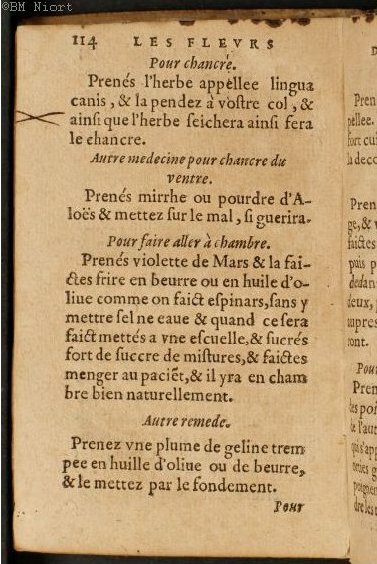 ©BM Niort
114 LES FLEVRS
Pour chancre.
Prenés l'herbe appellee lingua
canis, & la pendez a vostre col, &
ainsi que l'herbe seichera ainsi fera
le chancre.
Autre medecine pour chancre du
ventre.
Prenés mirrhe ou pourdre d'A-
loës & mettez sur le mal, si guerira.
Pour faire aller à chambre.
Prenés violette de Mars & la fai-
ctes frire en beurre ou en huile d'o-
liue comme on faict espinars, sans y
mettre sel ne eaue & quand ce sera
faict mettés a vne escuelle, & sucrés
fort de succre de mistures, & faictes
menger au paciẽt, & il yra en cham
bre bien naturellement.
Autre remede.
Prenez vne plume de geline trem
pee en huille d'oliue ou de beurre,
& le mettez par le fondement.
Pour